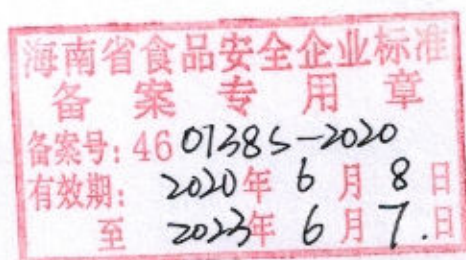 海南省食品安全企业标准
备案专用章
备案号：46 01385-2020
有效期： 2020年 6 月 8 日
至 2023年 6 月 7 . 日